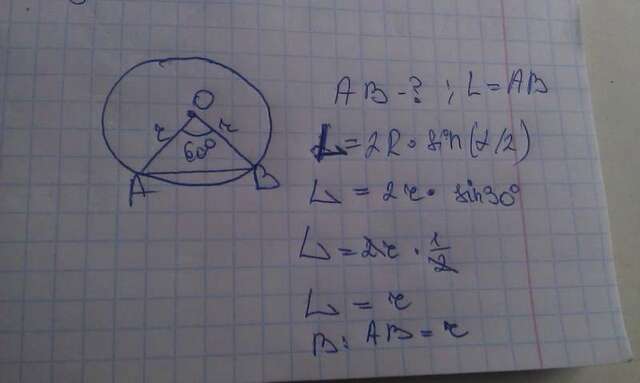 O
r r
60°
A B
AB - ? ; L = AB
L = 2R · sin(α/2)
L = 2r · sin30°
L = 2r · 1/2
L = r
В: AB = r